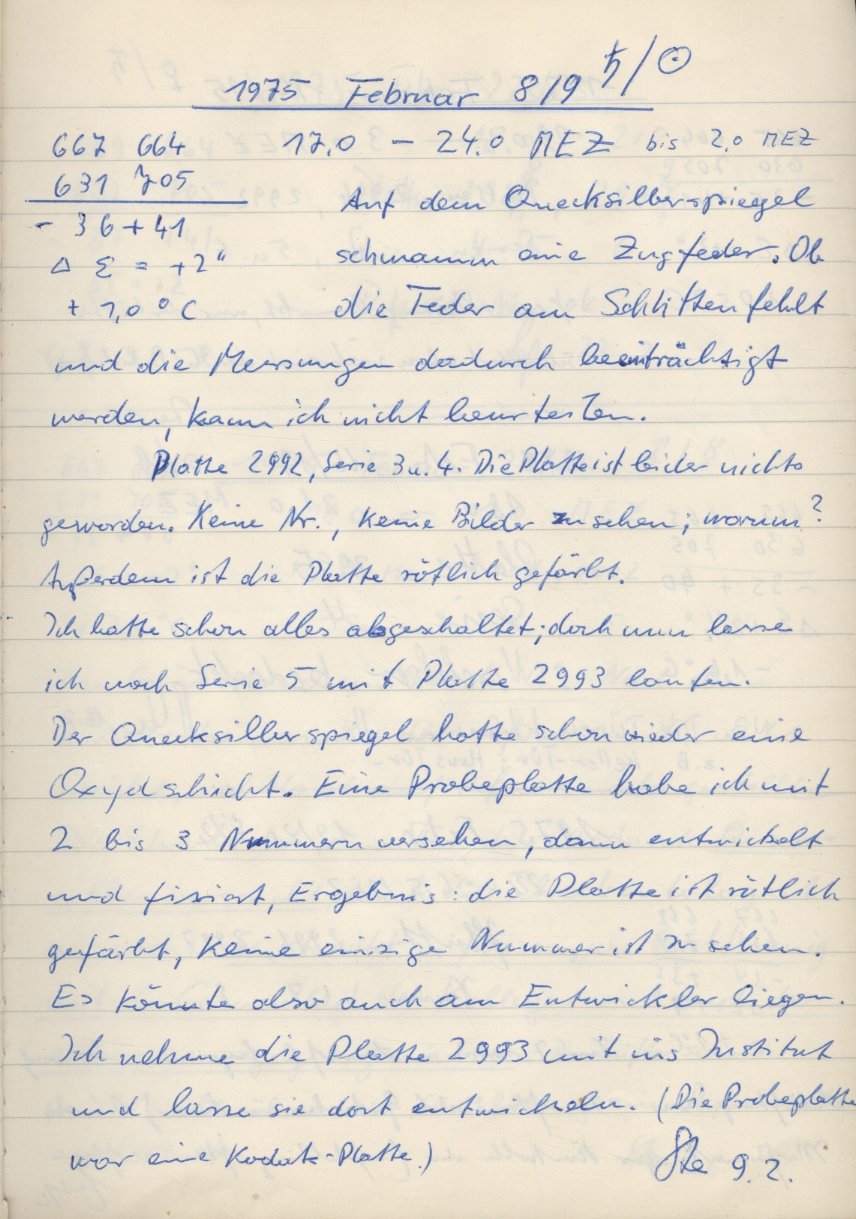 1975 Februar 8/9 ♄/☉
667 664 17.0 - 24.0 MEZ bis 2.0 MEZ
631 705 Auf dem Quecksilberspiegel
- 36 + 41 schwamm eine Zugfeder. Ob
Δ Σ = +2" die Feder am Schlitten fehlt
+ 1,0 °C
und die Messungen dadurch beeinträchtigt
werden, kann ich nicht beurteilen.
Platte 2992, Serie 3 u. 4. Die Platte ist leider nichts
geworden. Keine Nr., keine Bilder zu sehen; warum?
Außerdem ist die Platte rötlich gefärbt.
Ich hatte schon alles abgeschaltet; doch nun lasse
ich noch Serie 5 mit Platte 2993 laufen.
Der Quecksilberspiegel hatte schon wieder eine
Oxydschicht. Eine Probeplatte habe ich mit
2 bis 3 Nummern versehen, dann entwickelt
und fixiert, Ergebnis: die Platte ist rötlich
gefärbt, keine einzige Nummer ist zu sehen.
Es könnte also auch am Entwickler liegen.
Ich nehme die Platte 2993 mit ins Institut
und lasse sie dort entwickeln. (Die Probeplatte
war eine Kodak-Platte.) Ste 9.2.